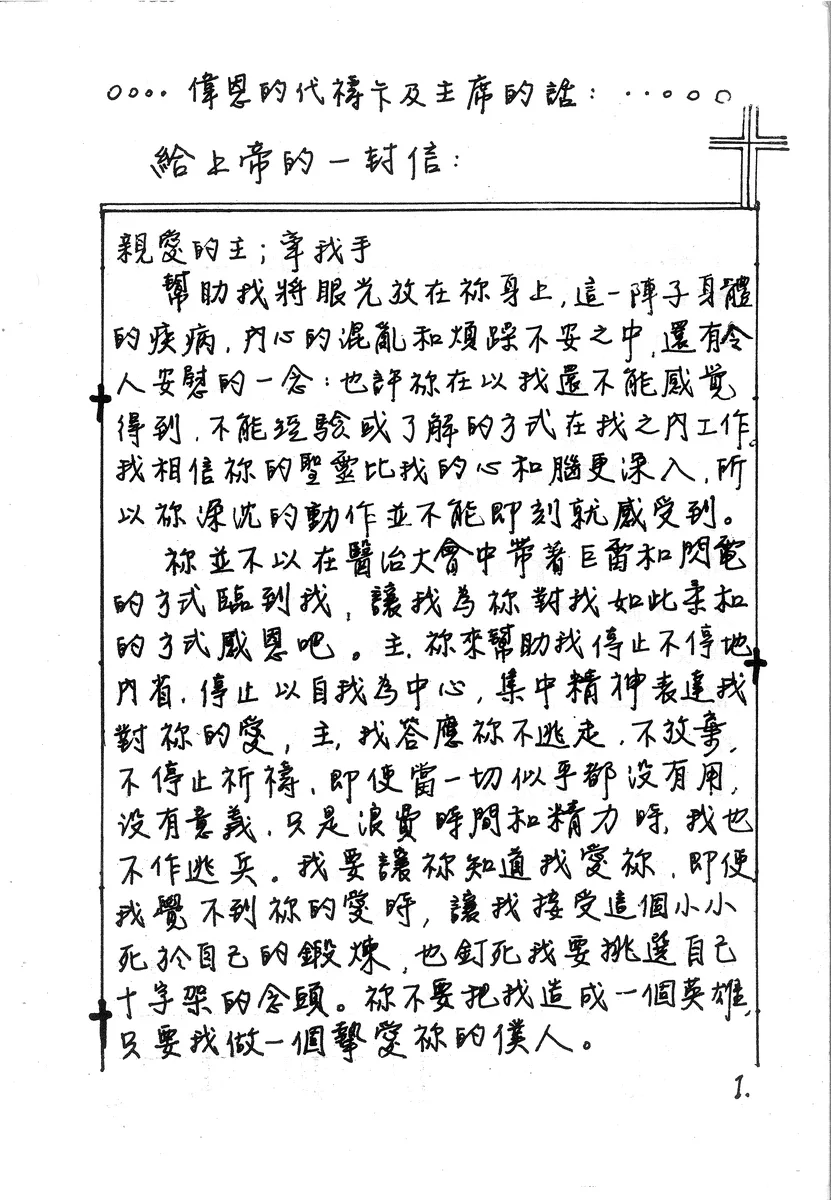 ○○○..偉恩的代禱卡及主席的話：...○○○
給上帝的一封信：
親愛的主；牽我手
幫助我將眼光放在祢身上，這一陣子身體
的疾病，內心的混亂和煩躁不安之中，還有令
人安慰的一念：也許祢在以我還不能感覚
得到，不能經驗或了解的方式在我之內工作。
我相信祢的聖靈比我的心和腦更深入，所
以祢深沈的動作並不能即刻就感受到。
祢並不以在醫治大會中帶著巨雷和閃電
的方式臨到我，讓我為祢對我如此柔和
的方式感恩吧。主，祢來幫助我停止不停地
內省，停止以自我為中心，集中精神表達我
對祢的愛，主，我答應祢不逃走，不放棄，
不停止祈禱，即使當一切似乎都沒有用，
沒有意義，只是浪費時間和精力時，我也
不作逃兵。我要讓祢知道我愛祢，即使
我覺不到祢的愛時，讓我接受這個小小
死於自己的鍛煉，也釘死我要挑選自己
十字架的念頭。祢不要把我造成一個英雄，
只要我做一個摯愛祢的僕人。
1.